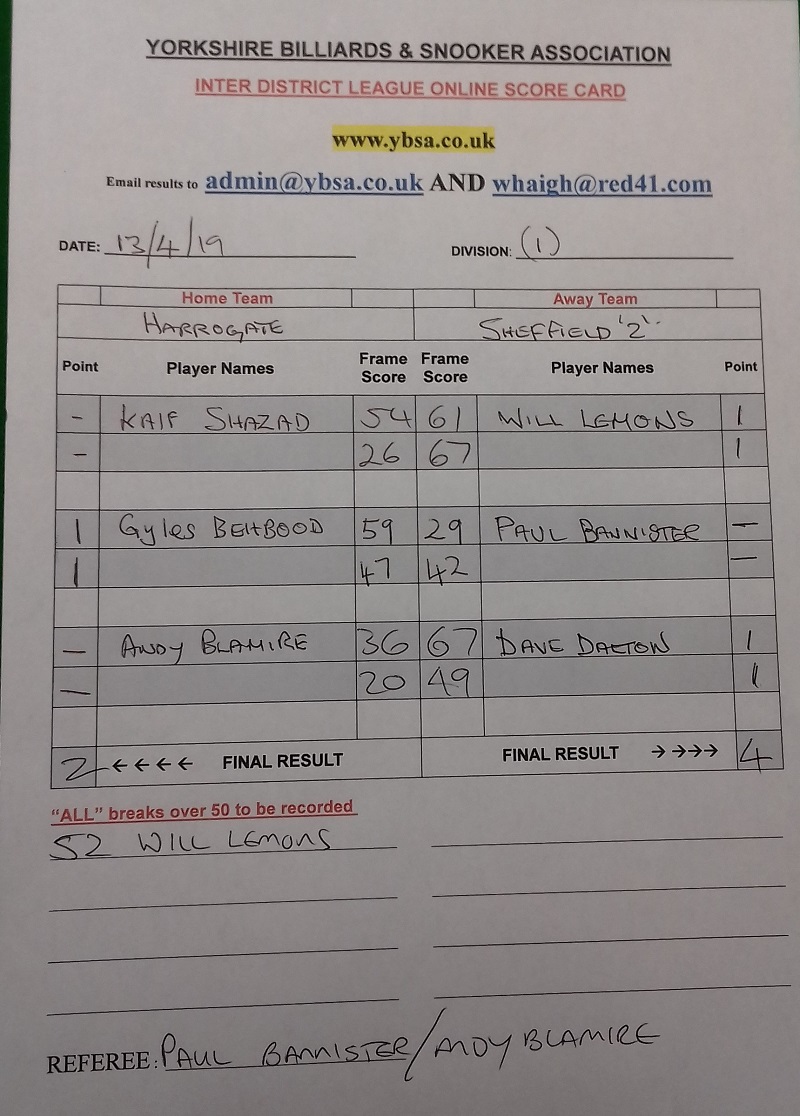 YORKSHIRE BILLIARDS & SNOOKER ASSOCIATION
INTER DISTRICT LEAGUE ONLINE SCORE CARD
www.ybsa.co.uk
Email results to admin@ybsa.co.uk AND whaigh@red41.com
DATE: 13/4/19 DIVISION: (1)
Home Team Away Team
HARROGATE SHEFFIELD '2'.
Point Player Names Frame Score Frame Score Player Names Point
- KAIF SHAZAD 54 61 WILL LEMONS 1
- 26 67 1
1 Gyles BEHBOOD 59 29 PAUL BANNISTER -
1 47 42 -
- ANDY BLAMIRE 36 67 DAVE DALTON 1
- 20 49 1
2 ←←←← FINAL RESULT FINAL RESULT →→→→ 4
"ALL" breaks over 50 to be recorded
52 WILL LEMONS
REFEREE: PAUL BANNISTER/ANDY BLAMIRE